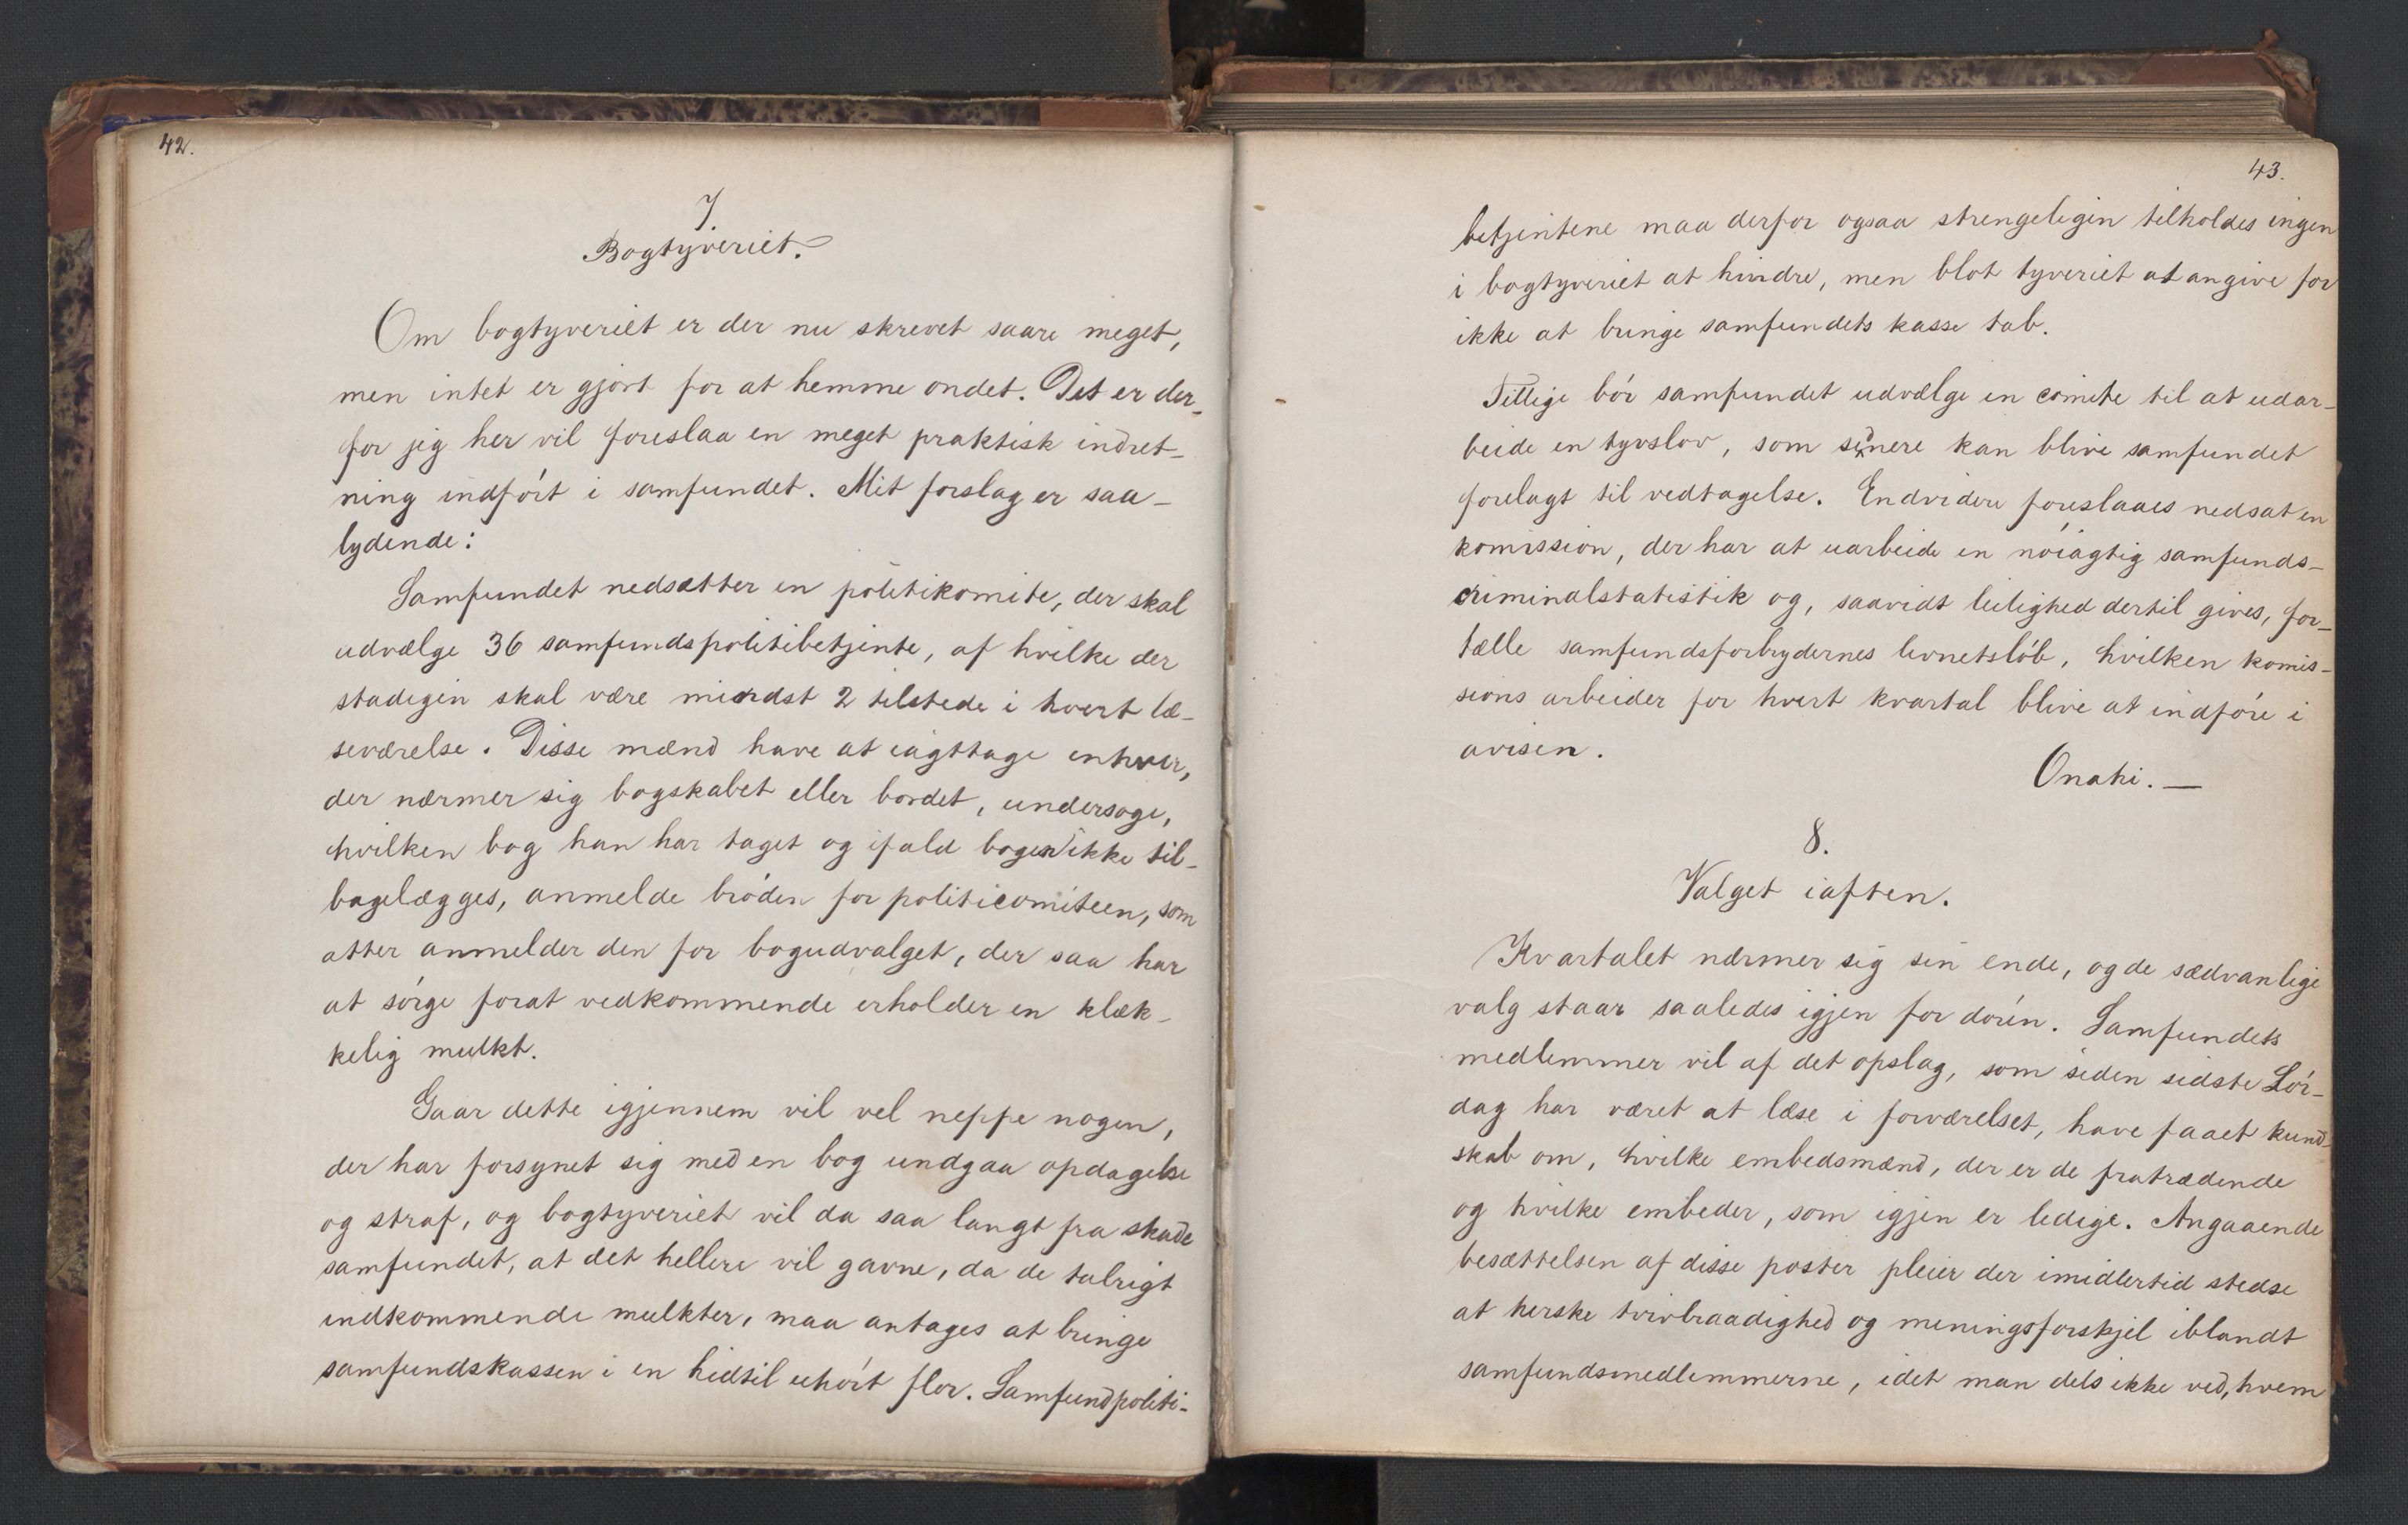 42.
7.
Bogtyveriet.
Om bogtyveriet er der nu skrevet saare meget,
men intet er gjort for at hemme ondet. Det er der-
for jeg her vil foreslaa en meget praktisk indret-
ning indført i samfundet. Mit forslag er saa-
lydende:
Samfundet nedsætter en politikomite, der skal
udvælge 36 samfundspolitibetjente, af hvilke der
stadigen skal være mindst 2 tilstede i hvert læ-
seværelse. Disse mænd have at iagttage enhver,
der nærmer sig bogskabet eller bordet, undersøge,
hvilken bog han har taget og ifald bogen ikke til-
bagelægges, anmelde brøden for politicomiteen, som
atter anmelder den for bogudvalget, der saa har
at sørge forat vedkommende erholder en klæk-
kelig mulkt.
Gaar dette igjennem vil vel neppe nogen,
der har forsynet sig med en bog undgaa opdagelse
og straf, og bogtyveriet vil da saa langt fra skade
samfundet, at det hellere vil gavne, da de talrigt
indkommende mulkter, maa antages at bringe
samfundskassen i en hidtil uhørt flor. Samfundpoliti-
43.
betjentene maa derfor ogsaa strengeligen tilholdes ingen
i bogtyveriet at hindre, men blot tyveriet at angive for
ikke at bringe samfundets kasse tab.
Tillige bør samfundet udvælge en comite til at udar-
beide en tyvslov, som senere kan blive samfundet
forelagt til vedtagelse. Endvidere foreslaaes nedsat en
komission, der har at uarbeide en nøiagtig samfunds-
criminalstatistik og, saavidt leilighed dertil gives, for-
tælle samfundsforbrydernes levnetsløb, hvilken komis-
sions arbeider for hvert kvartal blive at indføre i
avisen.
Onahi. —
8.
Valget iaften.
Kvartalet nærmer sig sin ende, og de sædvanlige
valg staar saaledes igjen for døren. Samfundets
medlemmer vil af det opslag, som siden sidste Lør-
dag har været at læse i forværelset, have faaet kund
skab om, hvilke embedsmænd, der er de fratrædende
og hvilke embeder, som igjen er ledige. Angaaende
besættelsen af disse poster pleier der imidlertid stedse
at herske tvivlraadighed og meningsforskjel iblandt
samfundsmedlemmerne, idet man dels ikke ved, hvem